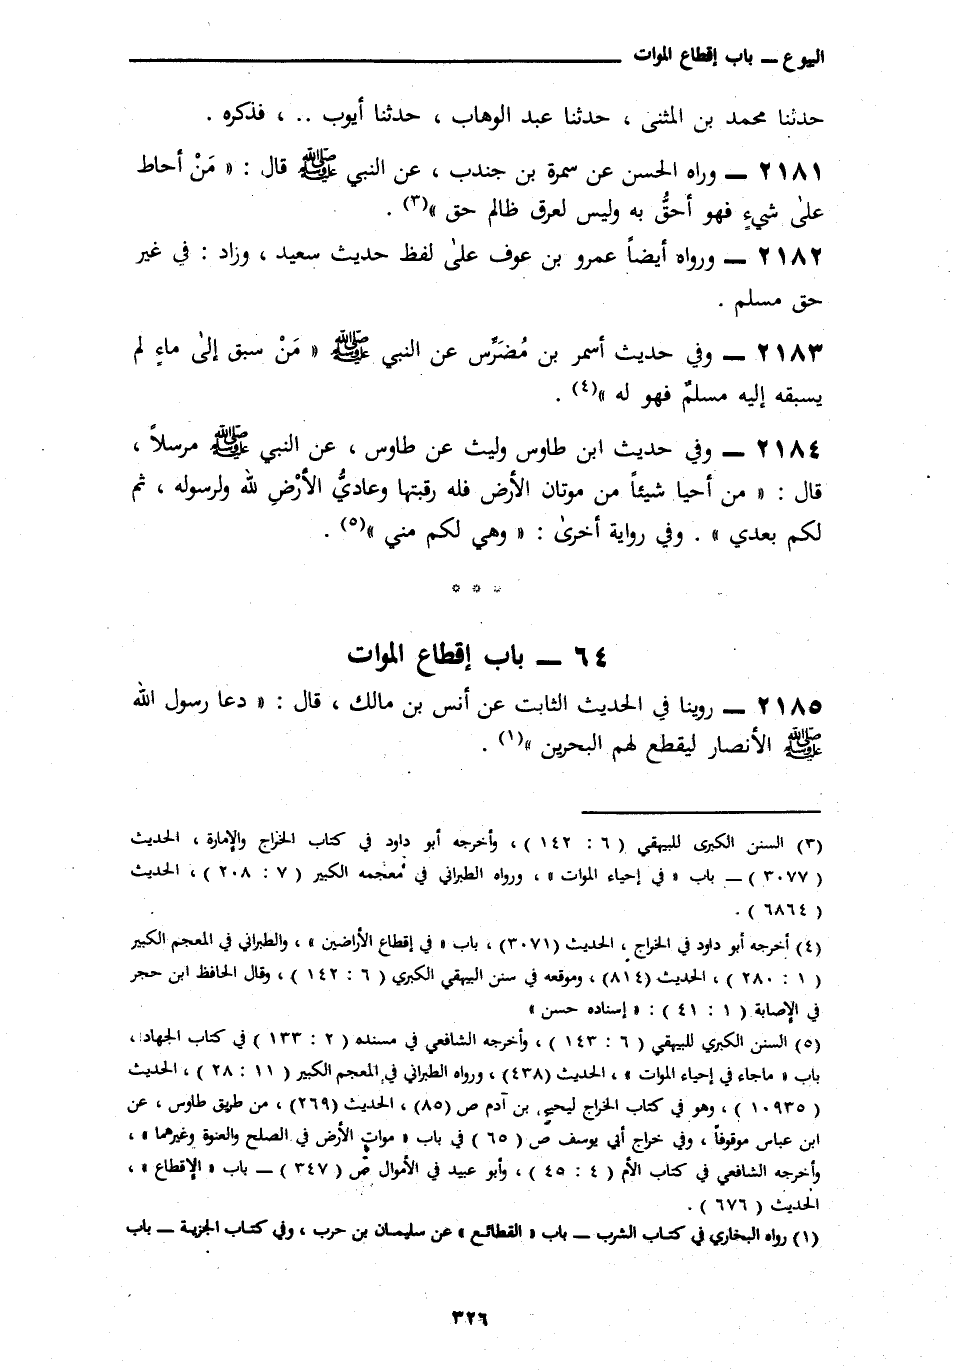 البيوع ــ باب إقطاع الموات
حدثنا محمد بن المثنى ، حدثنا عبد الوهاب ، حدثنا أيوب .. ، فذكره .
٢١٨١ ــ وراه الحسن عن سمرة بن جندب ، عن النبي ﷺ قال : « مَنْ أحاط
علىٰ شيءٍ فهو أحقُّ به وليس لعرق ظالم حق »(٣) .
٢١٨٢ ــ ورواه أيضاً عمرو بن عوف علىٰ لفظ حديث سعيد ، وزاد : في غير
حق مسلم .
٢١٨٣ ــ وفي حديث أسمر بن مُضَرِّس عن النبي ﷺ « مَنْ سبق إلىٰ ماءٍ لم
يسبقه إليه مسلمٌ فهو له »(٤) .
٢١٨٤ ــ وفي حديث ابن طاوس وليث عن طاوس ، عن النبي ﷺ مرسلاً ،
قال : « من أحيا شيئاً من موتان الأرض فله رقبتها وعاديُّ الأرْضِ لله ولرسوله ، ثم
لكم بعدي » . وفي رواية أخرىٰ : « وهي لكم مني »(٥) .
* * *
٦٤ ــ باب إقطاع الموات
٢١٨٥ ــ روينا في الحديث الثابت عن أنس بن مالك ، قال : « دعا رسول الله
ﷺ الأنصار ليقطع لهم البحرين »(١) .
(٣) السنن الكبرى للبيهقي ( ٦ : ١٤٢ ) ، وأخرجه أبو داود في كتاب الخراج والإمارة ، الحديث
( ٣٠٧٧ ) ــ باب « في إحياء الموات » ، ورواه الطبراني في معجمه الكبير ( ٧ : ٢٠٨ ) ، الحديث
( ٦٨٦٤ ) .
(٤) أخرجه أبو داود في الخراج ، الحديث (٣٠٧١) ، باب « في إقطاع الأراضين » ، والطبراني في المعجم الكبير
( ١ : ٢٨٠ ) ، الحديث (٨١٤) ، وموقعه في سنن البيهقي الكبري ( ٦ : ١٤٢ ) ، وقال الحافظ ابن حجر
في الإصابة ( ١ : ٤١ ) : « إسناده حسن »
(٥) السنن الكبري للبيهقي ( ٦ : ١٤٣ ) ، وأخرجه الشافعي في مسنده ( ٢ : ١٣٣ ) في كتاب الجهاد ،
باب « ماجاء في إحياء الموات » ، الحديث (٤٣٨) ، ورواه الطبراني في المعجم الكبير ( ١١ : ٢٨ ) ، الحديث
( ١٠٩٣٥ ) ، وهو في كتاب الخراج ليحيى بن آدم ص (٨٥) ، الحديث (٢٦٩) ، من طريق طاوس ، عن
ابن عباس موقوفاً ، وفي خراج أبي يوسف ص ( ٦٥ ) في باب « موات الأرض في الصلح والعنوة وغيرهما » ،
وأخرجه الشافعي في كتاب الأم ( ٤ : ٤٥ ) ، وأبو عبيد في الأموال ص ( ٣٤٧ ) ــ باب « الإقطاع » ،
الحديث ( ٦٧٦ ) .
(١) رواه البخاري في كتاب الشرب ــ باب « القطائع » عن سليمان بن حرب ، وفي كتاب الجزية ــ باب
٣٢٦